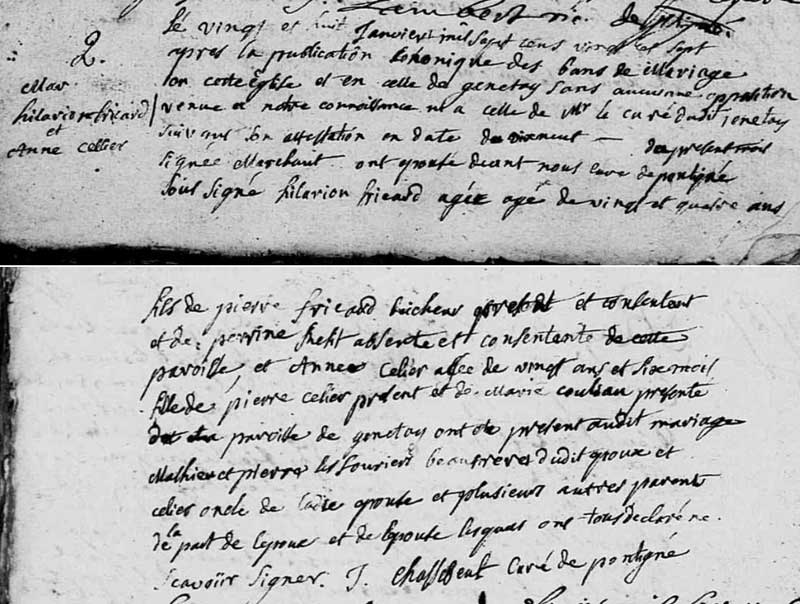 2.
Mar
hilarion fricard
et
Anne cellier
Le vingt et huit Janvier mil sept cens vingt et sept
apres la publication des bans de Mariage
en cette Eglise et en celle de genetay sans aucunne opposition
venue a notre connoissance ni a celle de Mr le curé dudit genetay
suivant son attestation en date du du present mois
signée Marchaut ont epousé devant nous curé de pontigné
sous signé hilarion fricard agée agé de vingt et quatre ans
fils de pierre fricard present et consentant
et de perrine absente et consentante de cette
paroisse et Anne Celier agée de vingt ans et six mois
fille de pierre celier present et de Marie couleau presente
de la paroisse de genetay ont eté present audit mariage
Mathieu et pierre les souriers beaufreres dudit epoux et
celier oncle de ladite epouse et plusieurs autres parent
de la part de lepoux et de lepouse lesquels ont tous declaré ne
scavoiir signer. J. Chassebeuf Curé de pontigné